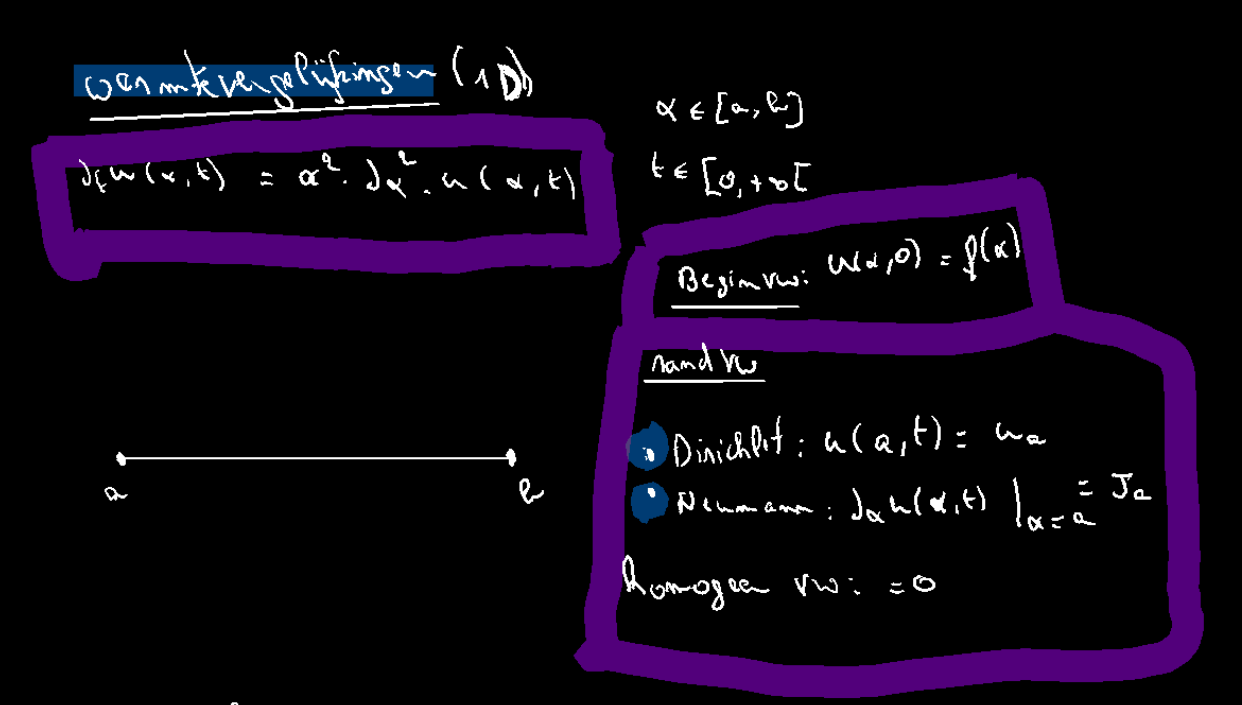 warmtevergelijkingen (1D)
∂ₜu(x,t) = α². ∂ₓ². u(x,t)
x ∈ [a,b]
t ∈ [0,+∞[
Beginvw: u(x,0) = f(x)
randvw
Dirichlet: u(a,t) = uₐ
Neumann: ∂ₓu(x,t) |ₓ₌ₐ = Jₐ
homogeen vw: =0
a
b